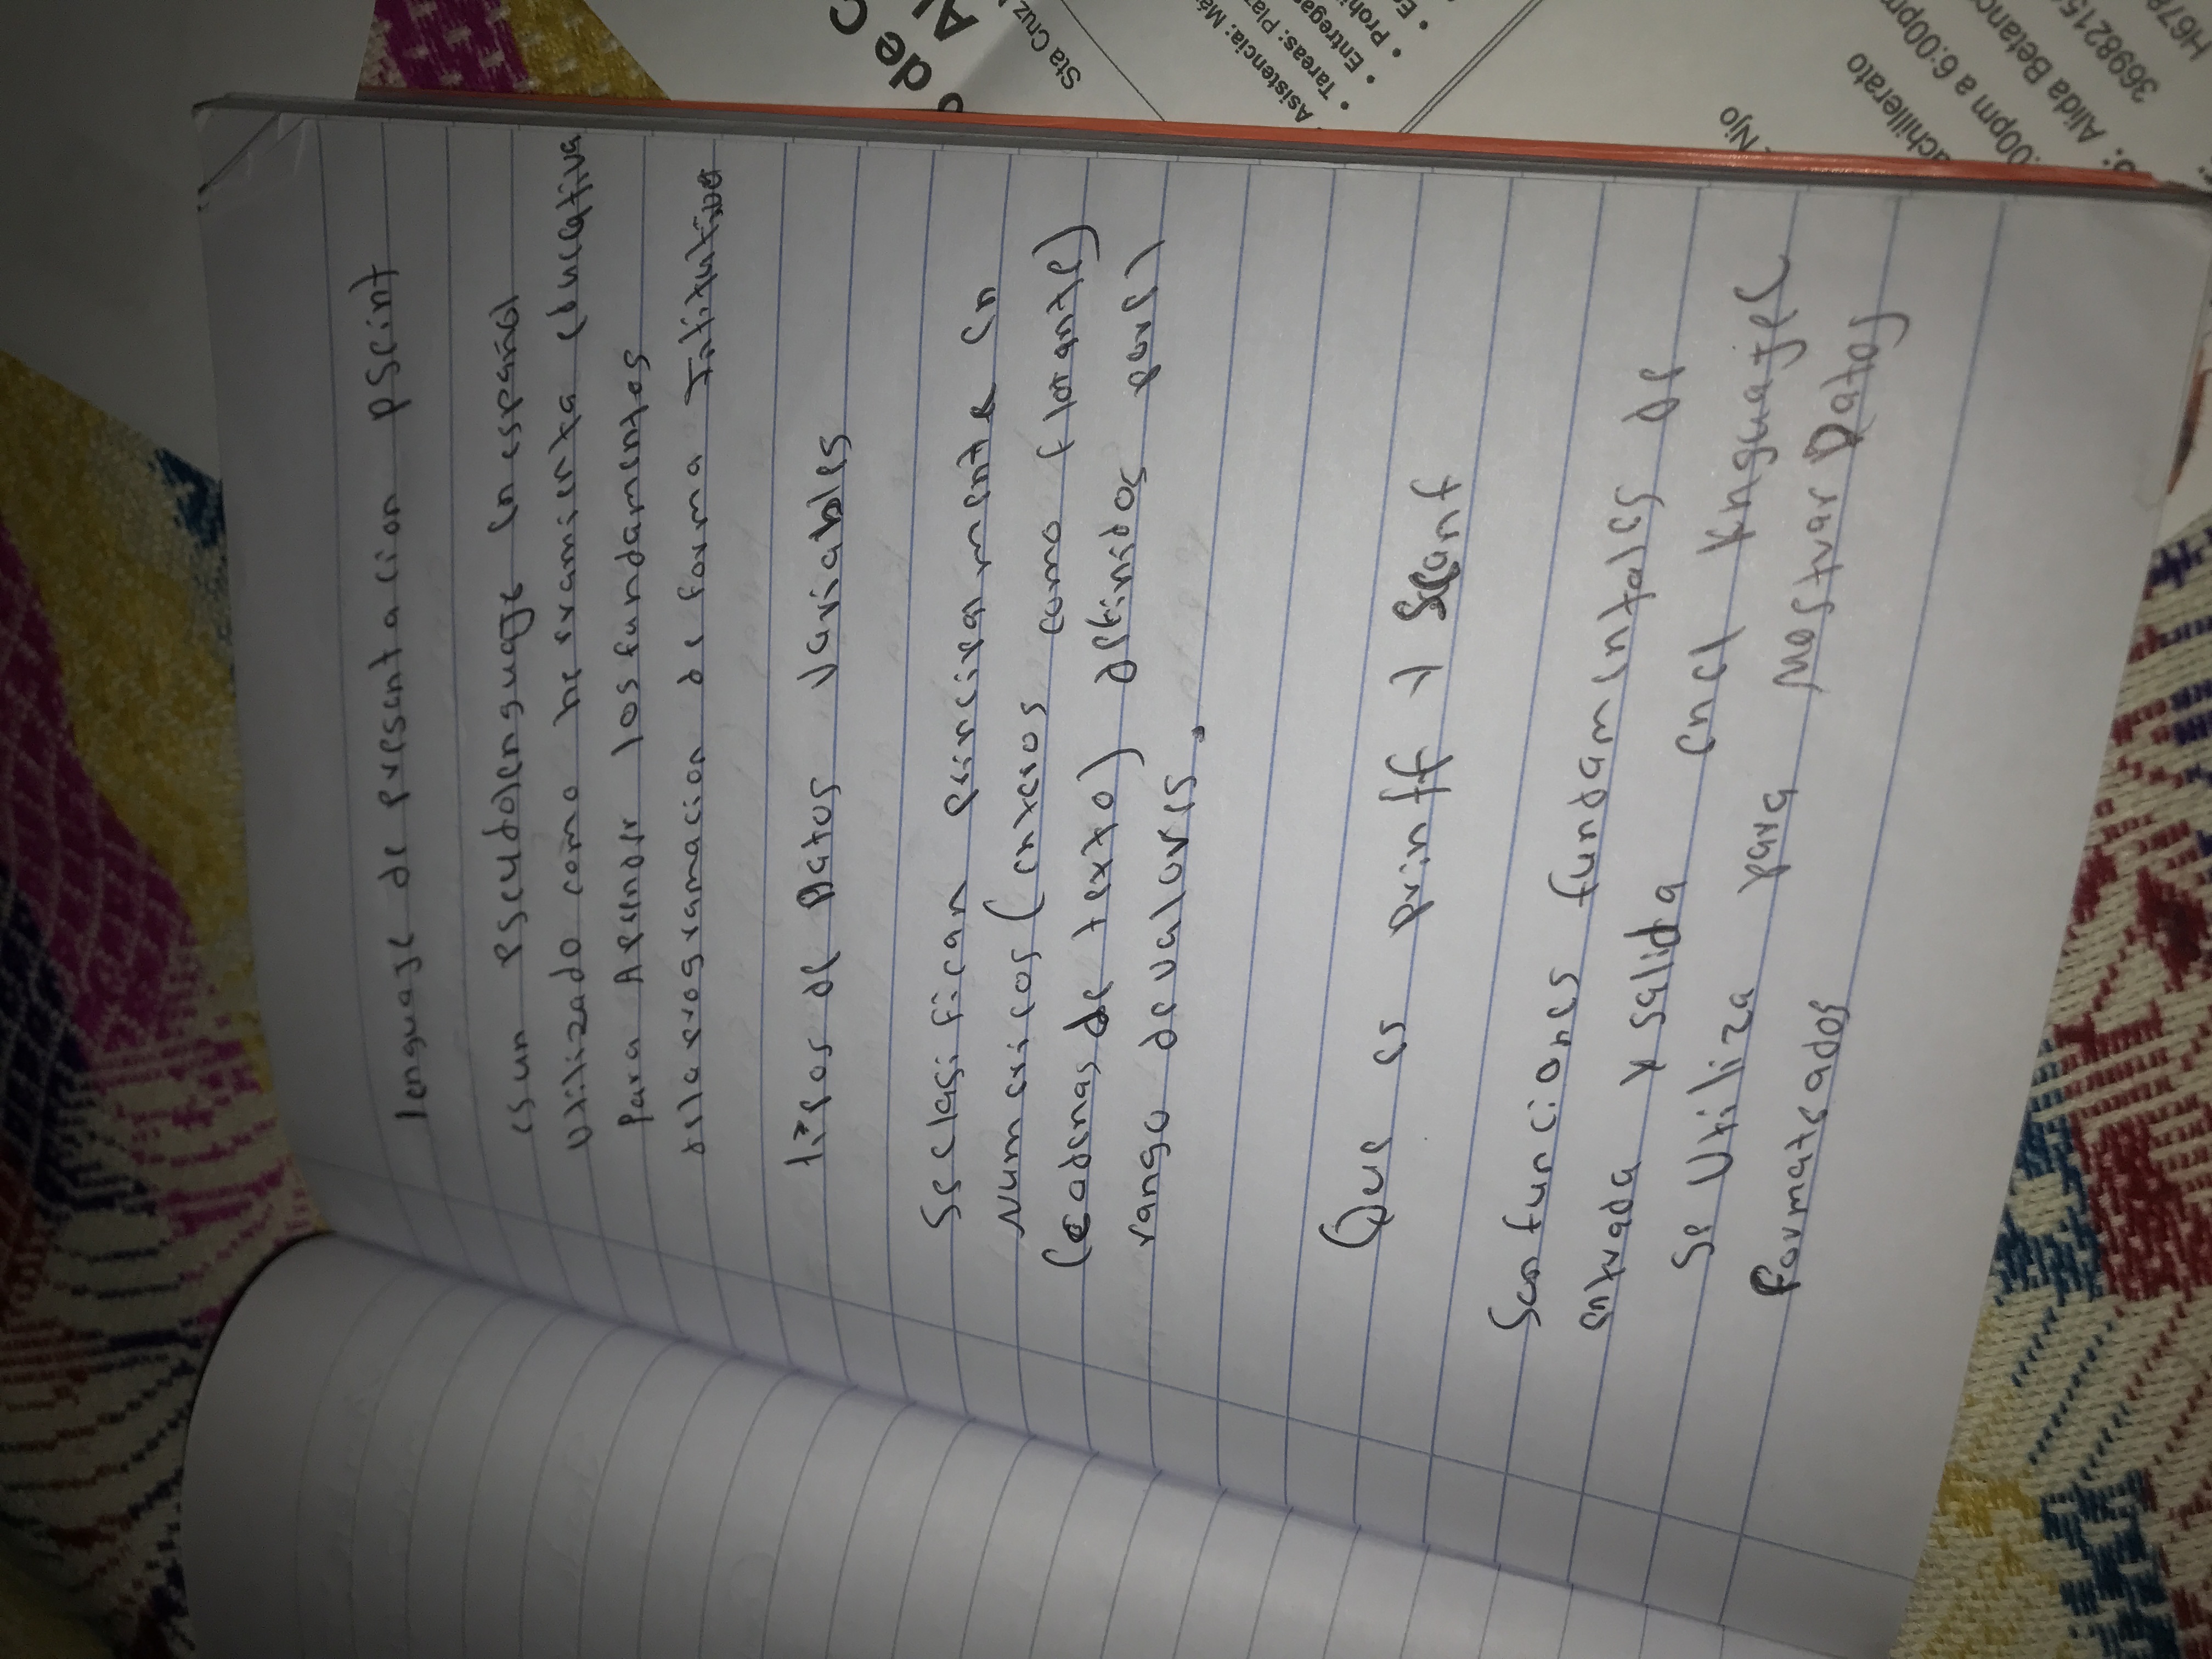 lenguaje de presentacion pseint
es un pseudolenguaje en español
Utilizado como herramienta educativa
Para Aprender los fundamentos
de la programacion de forma Intituitiva
tipos de Datos Variables
Se clasifican principarmente en
Numericos (enteros como flotante)
(cadenas de texto) definidos por el
rango de valores.
Que es prinff y Scanf
Son funciones fundamentales de
entrada y salida en el lenguaje C
Se Utiliza para Mostrar Datos
formateados
o de C
Al
Sta Cruz
Asistencia: Má
• Tareas: Plaz
• Entrega
• Prohi
• E
Njo
achillerato
:00pm a 6:00pm
s: Alida Betanc
3698215
H678